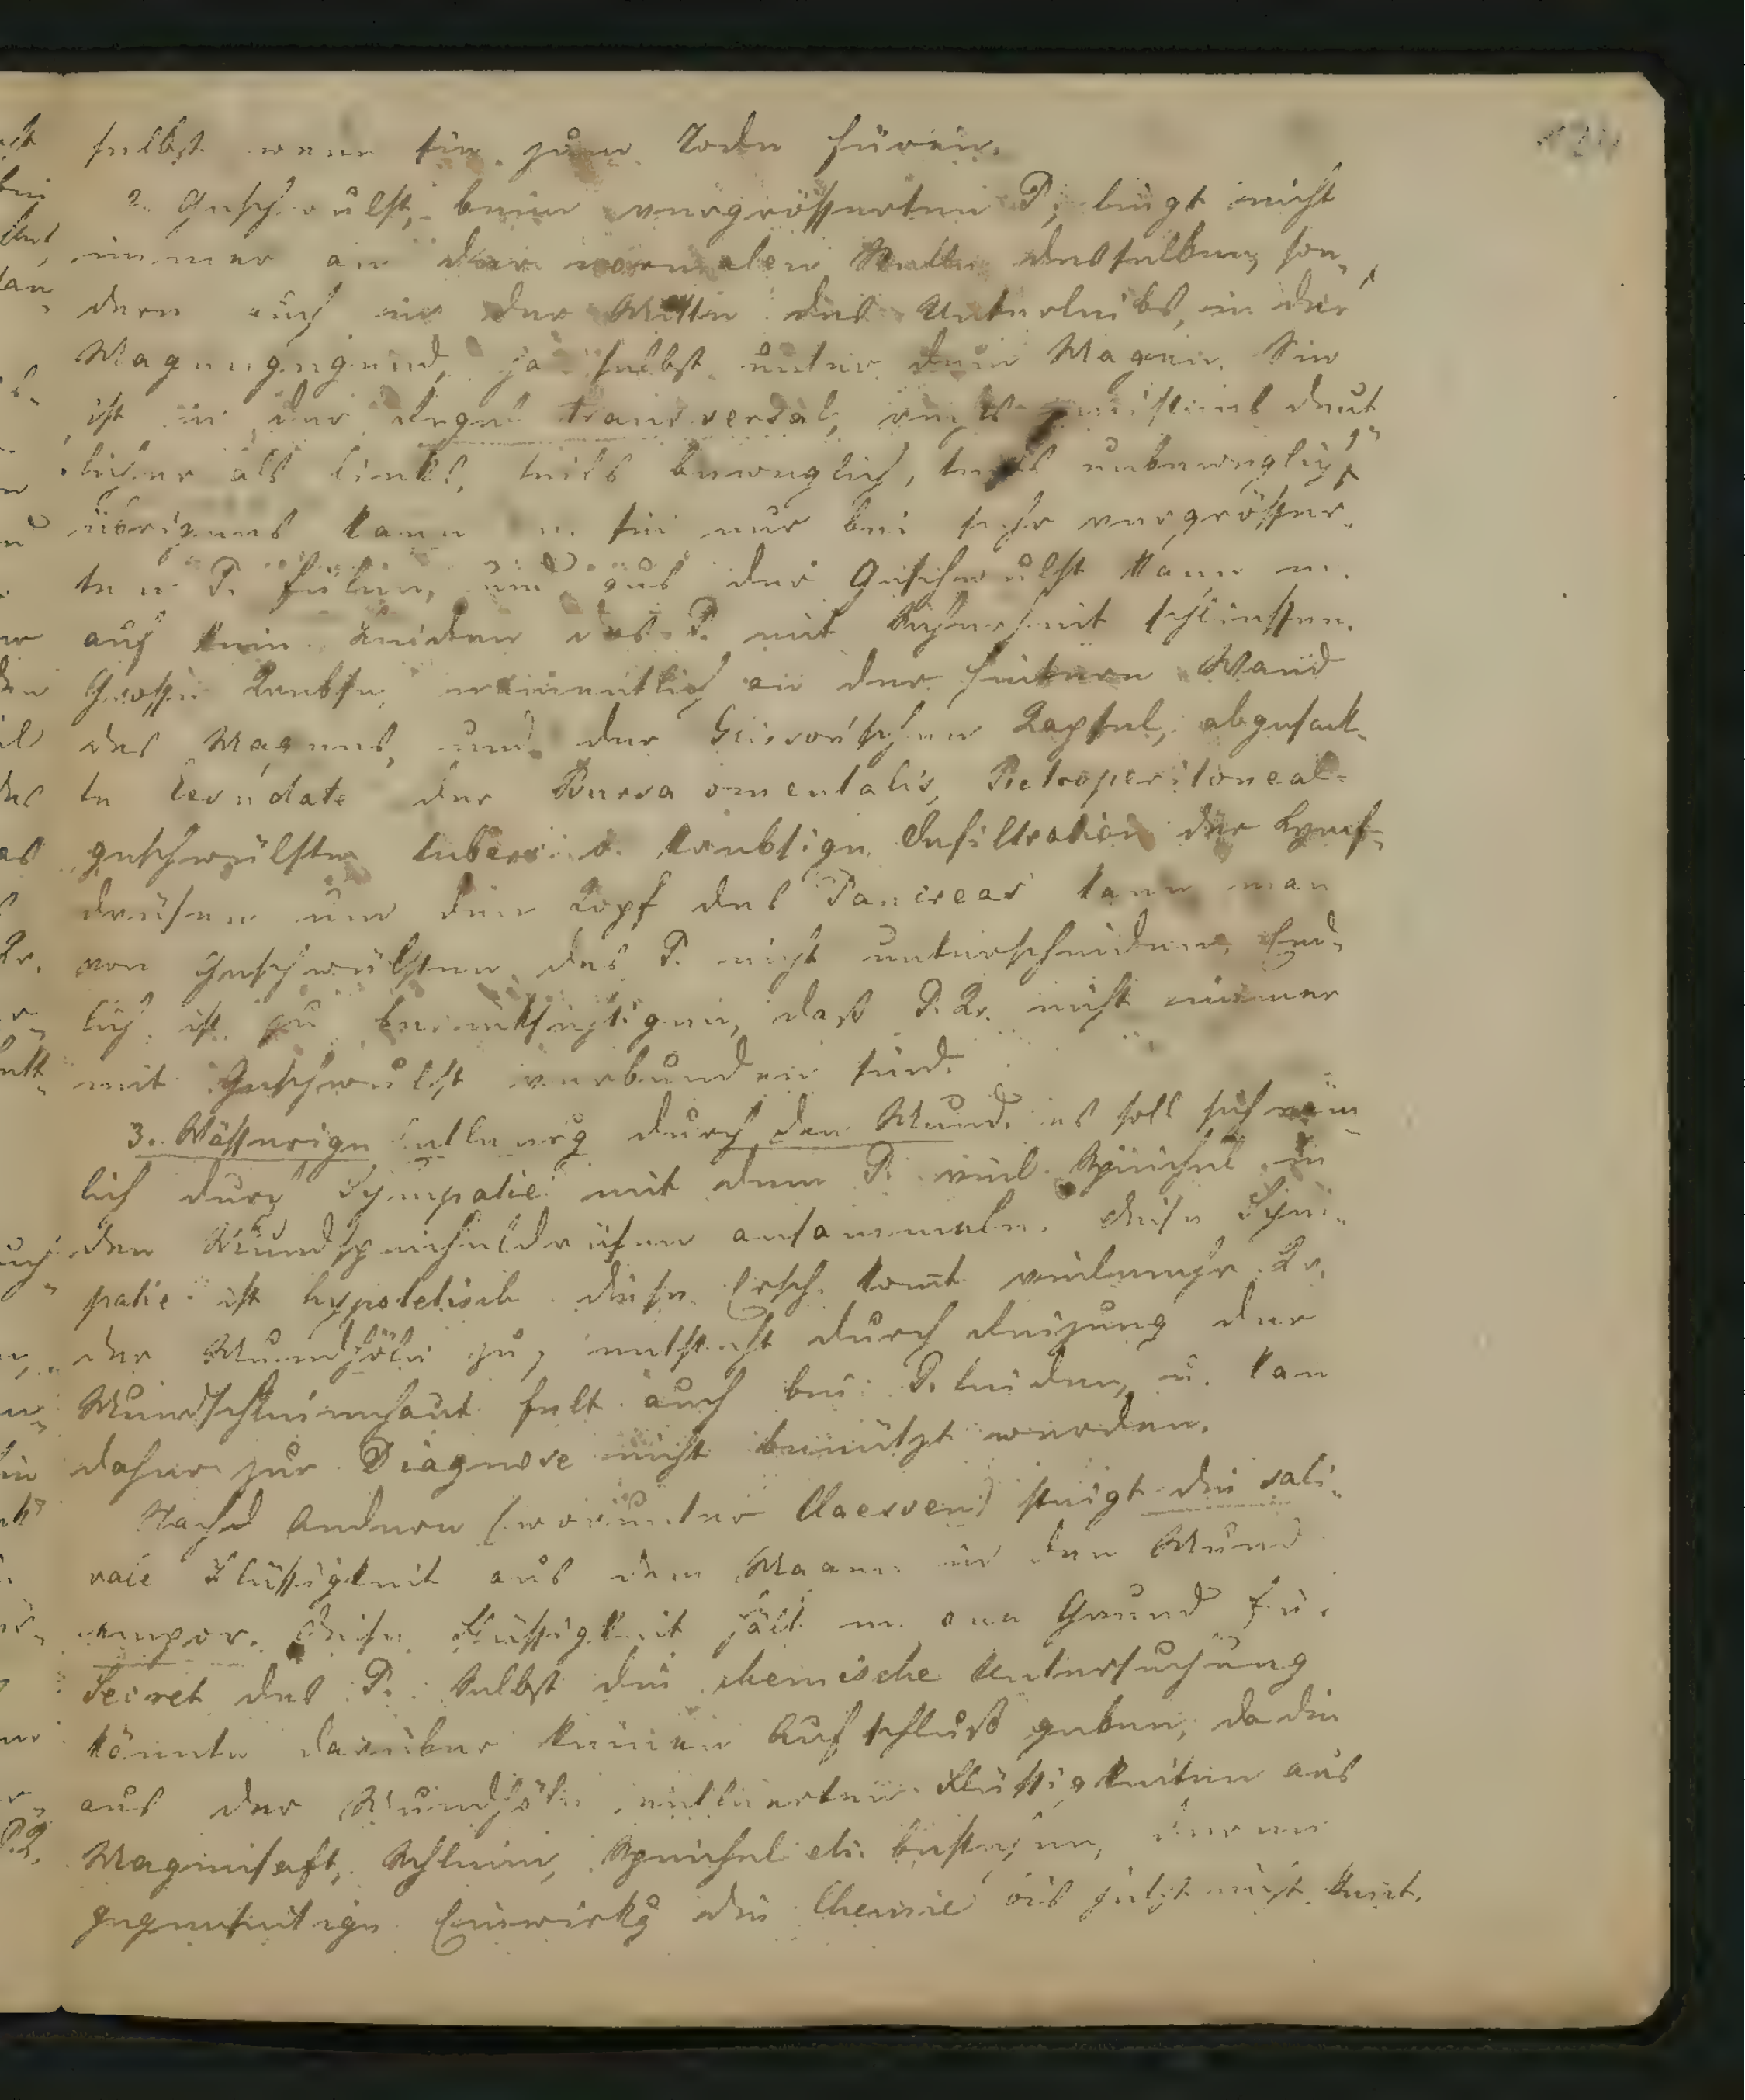 selbst wenn sie zum Tode füren.
2. Geschwulst, beim vergrösserten P, liegt nicht
immer an der normalen Stelle desselben, son-
dern auch in der Mitte des Unterleibs, in der
Magengegend, ja selbst unter dem Magen. Sie
ist in der Regel transversal, rechts meistens deut
licher als links, teils beweglich, teils unbeweglich,
übrigens kann m. sie nur bei sehr vergrösser-
ten P. fülen, und aus der Geschwulst kann m.
auf kein Leiden des P. mit Sicherheit schliessen.
Grosse Krebse, namentlich an der hintern Wand
des Magens, und der Glisson'schen Kapsel, abgesack-
te Exsudate der Bursa omentalis, Retroperitoneal-
geschwülste, tuberc. o. krebsige Infiltration der Lymf-
drüsen um den Kopf des Pancreas kann man
von Geschwülsten des P. nicht unterscheiden. End-
lich ist zu berücksichtigen, daß P. Kr. nicht immer
mit Geschwulst verbunden sind.
3. Wässerige Entleerg durch den Mund. es soll sich näm-
lich durch Sympatie mit dem P. viel Speichel in
den Mundspeicheldrüsen ansammeln. Diese Sym-
patie ist hypotetisch. diese Ersch. komt vielmehr Kr.
der Mundhöle zu, entsteht durch Reizung der
Mundschleimhaut felt auch bei P. leiden, u. kan
daher zur Diagnose nicht benützt werden.
Nach Andern (worunter Claessen) steigt die sali-
vale Flüssigkeit aus dem Magen in den Mund
empor. Diese Flüssigkeit hält m. one Grund für
Secret des P. Selbst die chemische Untersuchung
könnte darüber keinen Aufschluß geben, da die
aus der Mundhöle entleerten Flüssigkeiten aus
Magensaft, Schleim, Speichel etc. bestehen, deren
gegenseitige Einwirkg die Chemie bis jetzt nicht kent.